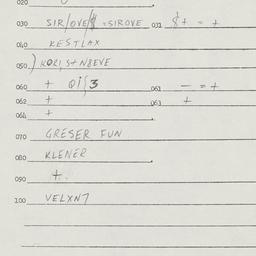 020
030 SIR/OVE/$ =SIROVE 031 $+ = +
040 KESTLAX
050 ) KORI, S+ N8EVE
060 + Q1/3 061 — = +
062 + 063 +
064 +
070 GRESER FUN
080 KLENER
090 +.
100 VELXN7